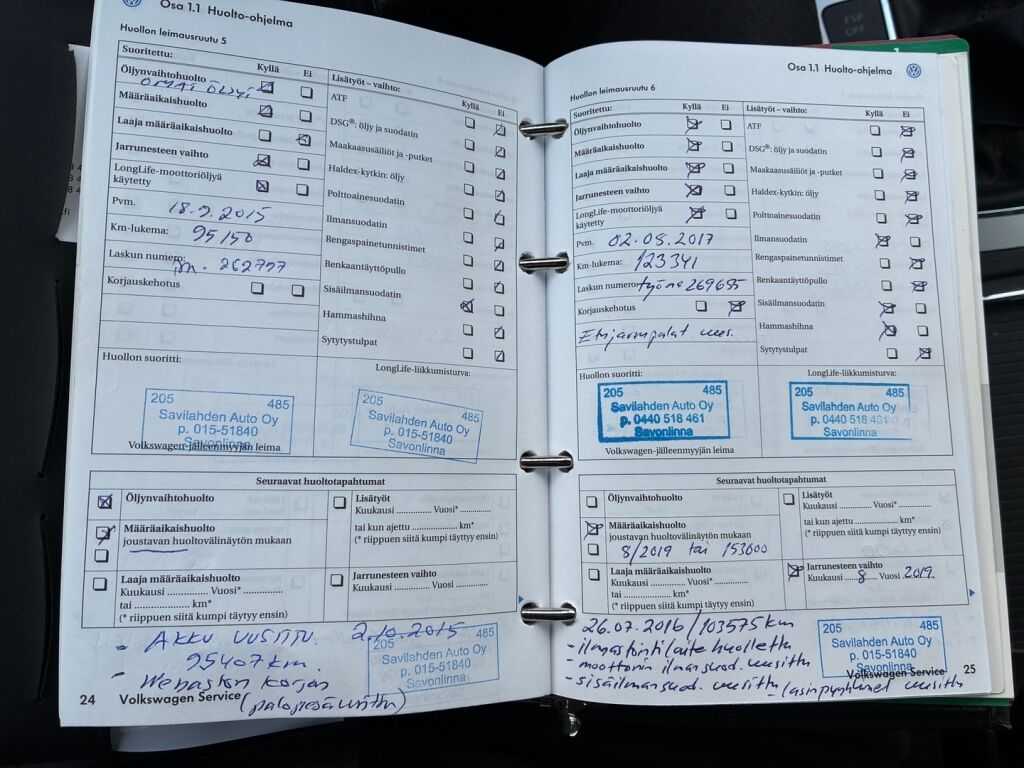 ESP
OFF
Osa 1.1 Huolto-ohjelma
Huollon leimausruutu 5
Suoritettu:
Kyllä
Ei
Öljynvaihtohuolto
OMAT ÖLJYT
Määräaikaishuolto
Laaja määräaikaishuolto
Jarrunesteen vaihto
LongLife-moottoriöljyä
käytetty
Pvm.
18.9.2015
Km-lukema:
95150
Laskun numero:
262797
Korjauskehotus
Lisätyöt – vaihto:
Kyllä
Ei
ATF
DSG®: öljy ja suodatin
Maakaasusäiliöt ja -putket
Haldex-kytkin: öljy
Polttoainesuodatin
Ilmansuodatin
Rengaspainetunnistimet
Renkaantäyttöpullo
Sisäilmansuodatin
Hammashihna
Sytytystulpat
Huollon suoritti:
205 485
Savilahden Auto Oy
p. 015-51840
Savonlinna
Volkswagen-jälleenmyyjän leima
LongLife-liikkumisturva:
205 485
Savilahden Auto Oy
p. 015-51840
Savonlinna
Seuraavat huoltotapahtumat
Öljynvaihtohuolto
Määräaikaishuolto
joustavan huoltovälinäytön mukaan
Lisätyöt
Kuukausi ............. Vuosi* ............
tai kun ajettu ............... km*
(* riippuen siitä kumpi täyttyy ensin)
Laaja määräaikaishuolto
Kuukausi ............. Vuosi* .............
tai ................... km*
(* riippuen siitä kumpi täytyy ensin)
Jarrunesteen vaihto
Kuukausi ............. Vuosi .............
- AKKU UUSITTU. 2.10.2015
95407km.
- Webaston korjaus
(palopesä uusittu)
205 485
Savilahden Auto Oy
p. 015-51840
Savonlinna
24 Volkswagen Service
Osa 1.1 Huolto-ohjelma
Huollon leimausruutu 6
Suoritettu:
Kyllä
Ei
Öljynvaihtohuolto
Määräaikaishuolto
Laaja määräaikaishuolto
Jarrunesteen vaihto
LongLife-moottoriöljyä
käytetty
Pvm.
02.08.2017
Km-lukema:
123341
Laskun numero:
työnro 269655
Korjauskehotus
Etujarrupalat uus.
Lisätyöt – vaihto:
Kyllä
Ei
ATF
DSG®: öljy ja suodatin
Maakaasusäiliöt ja -putket
Haldex-kytkin: öljy
Polttoainesuodatin
Ilmansuodatin
Rengaspainetunnistimet
Renkaantäyttöpullo
Sisäilmansuodatin
Hammashihna
Sytytystulpat
Huollon suoritti:
205 485
Savilahden Auto Oy
p. 0440 518 461
Savonlinna
Volkswagen-jälleenmyyjän leima
LongLife-liikkumisturva:
205 485
Savilahden Auto Oy
p. 0440 518 461
Savonlinna
Seuraavat huoltotapahtumat
Öljynvaihtohuolto
Määräaikaishuolto
joustavan huoltovälinäytön mukaan
8/2019 tai 153000
Lisätyöt
Kuukausi ............. Vuosi* ............
tai kun ajettu ............... km*
(* riippuen siitä kumpi täyttyy ensin)
Laaja määräaikaishuolto
Kuukausi ............. Vuosi* .............
tai ................... km*
(* riippuen siitä kumpi täytyy ensin)
Jarrunesteen vaihto
Kuukausi ....8.... Vuosi 2019.
26.07.2016/103575km
- ilmastointilaite huollettu
- moottorin ilmansuod. uusittu
- sisäilmansuod. uusittu - lasinpyyhkimet uusittu
205 485
Savilahden Auto Oy
p. 015-51840
Savonlinna
Volkswagen Service 25